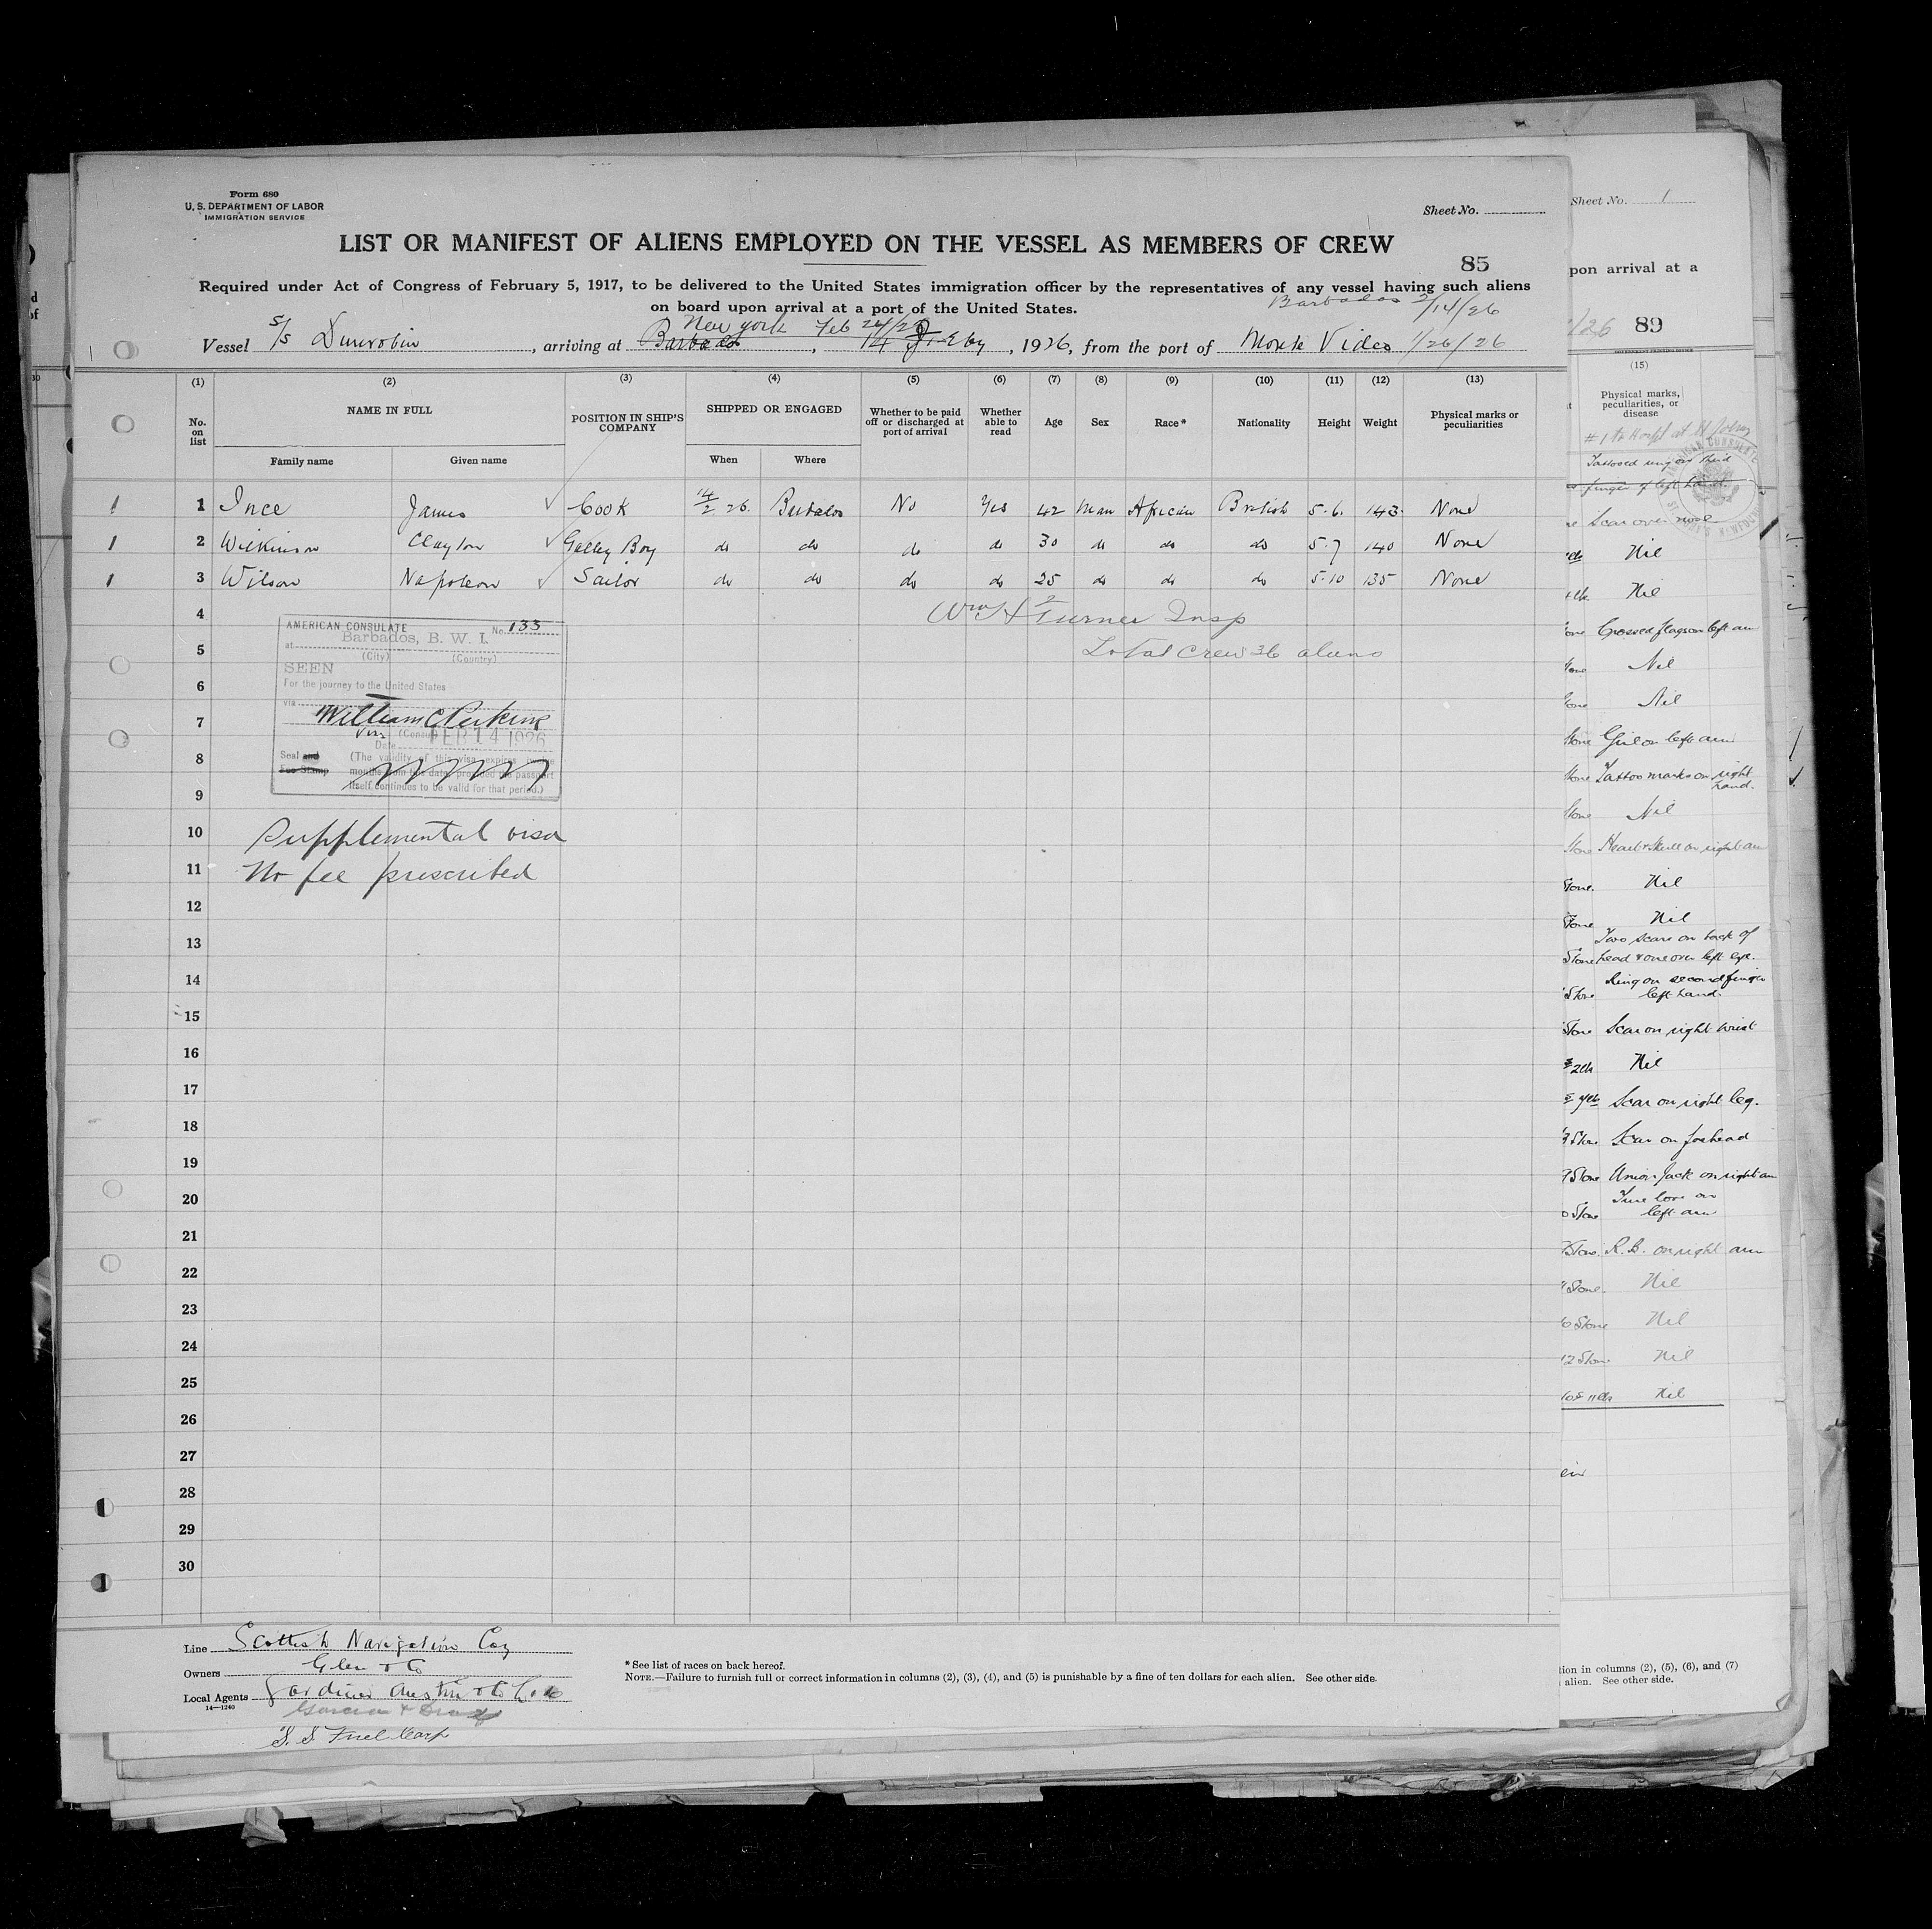 Form 680
U. S. DEPARTMENT OF LABOR
IMMIGRATION SERVICE
Sheet No.
LIST OR MANIFEST OF ALIENS EMPLOYED ON THE VESSEL AS MEMBERS OF CREW
85
Required under Act of Congress of February 5, 1917, to be delivered to the United States immigration officer by the representatives of any vessel having such aliens
on board upon arrival at a port of the United States.
Barbados 2/14/26
New York Feb 24/26
Vessel S/S Dunrobin, arriving at Barbados, 14 Feby, 1926, from the port of Monte Video 1/26/26
(1) (2) (3) (4) (5) (6) (7) (8) (9) (10) (11) (12) (13)
No. on list NAME IN FULL POSITION IN SHIP'S COMPANY SHIPPED OR ENGAGED Whether to be paid off or discharged at port of arrival Whether able to read Age Sex Race* Nationality Height Weight Physical marks or peculiarities
Family name Given name When Where
1 Ince James Cook 14/2 26. Barbados No Yes 42 Man African British 5-6. 143. None
2 Wilkinson Clayton Galley Boy do do do do 30 do do do 5-7 140 None
3 Wilson Napoleon Sailor do do do do 25 do do do 5-10 135 None
4 Wm H Turner Insp
5 Total Crew 36 aliens
AMERICAN CONSULATE No. 133
at Barbados, B. W. I.
(City) (Country)
SEEN
For the journey to the United States
via
William C Perkins
(Consul)
Date FEB 14 1926
Seal and Fee Stamp
(The validity of this visa expires twelve
months from this date, provided the passport
itself continues to be valid for that period.)
6
7
8
9
10 Supplemental visa
11 No fee prescribed
12
13
14
15
16
17
18
19
20
21
22
23
24
25
26
27
28
29
30
Line Scottish Navigation Coy
Owners Glen & Co
Local Agents Gardiner Austin & Co
14—1240
S. S. Fuel Corp
* See list of races on back hereof.
NOTE.—Failure to furnish full or correct information in columns (2), (3), (4), and (5) is punishable by a fine of ten dollars for each alien. See other side.
Sheet No. 1
pon arrival at a
/26 89
GOVERNMENT PRINTING OFFICE
(15)
Physical marks,
peculiarities, or
disease
Tattooed ring on third
finger of left hand.
Scar over nose
Nil
Nil
Crossed flags on left arm
Nil
Nil
Girl on left arm
Tattoo marks on right
hand.
Nil
Heart & Skull on right arm
Nil
Nil
Two scars on back of
head & one over left eye.
Ring on second finger
left hand.
Scar on right wrist
Nil
Scar on right leg.
Scar on forhead
Union Jack on right arm
True love on
left arm
R. B. on right arm
Nil
Nil
12 Stone Nil
Nil
tion in columns (2), (5), (6), and (7)
alien. See other side.